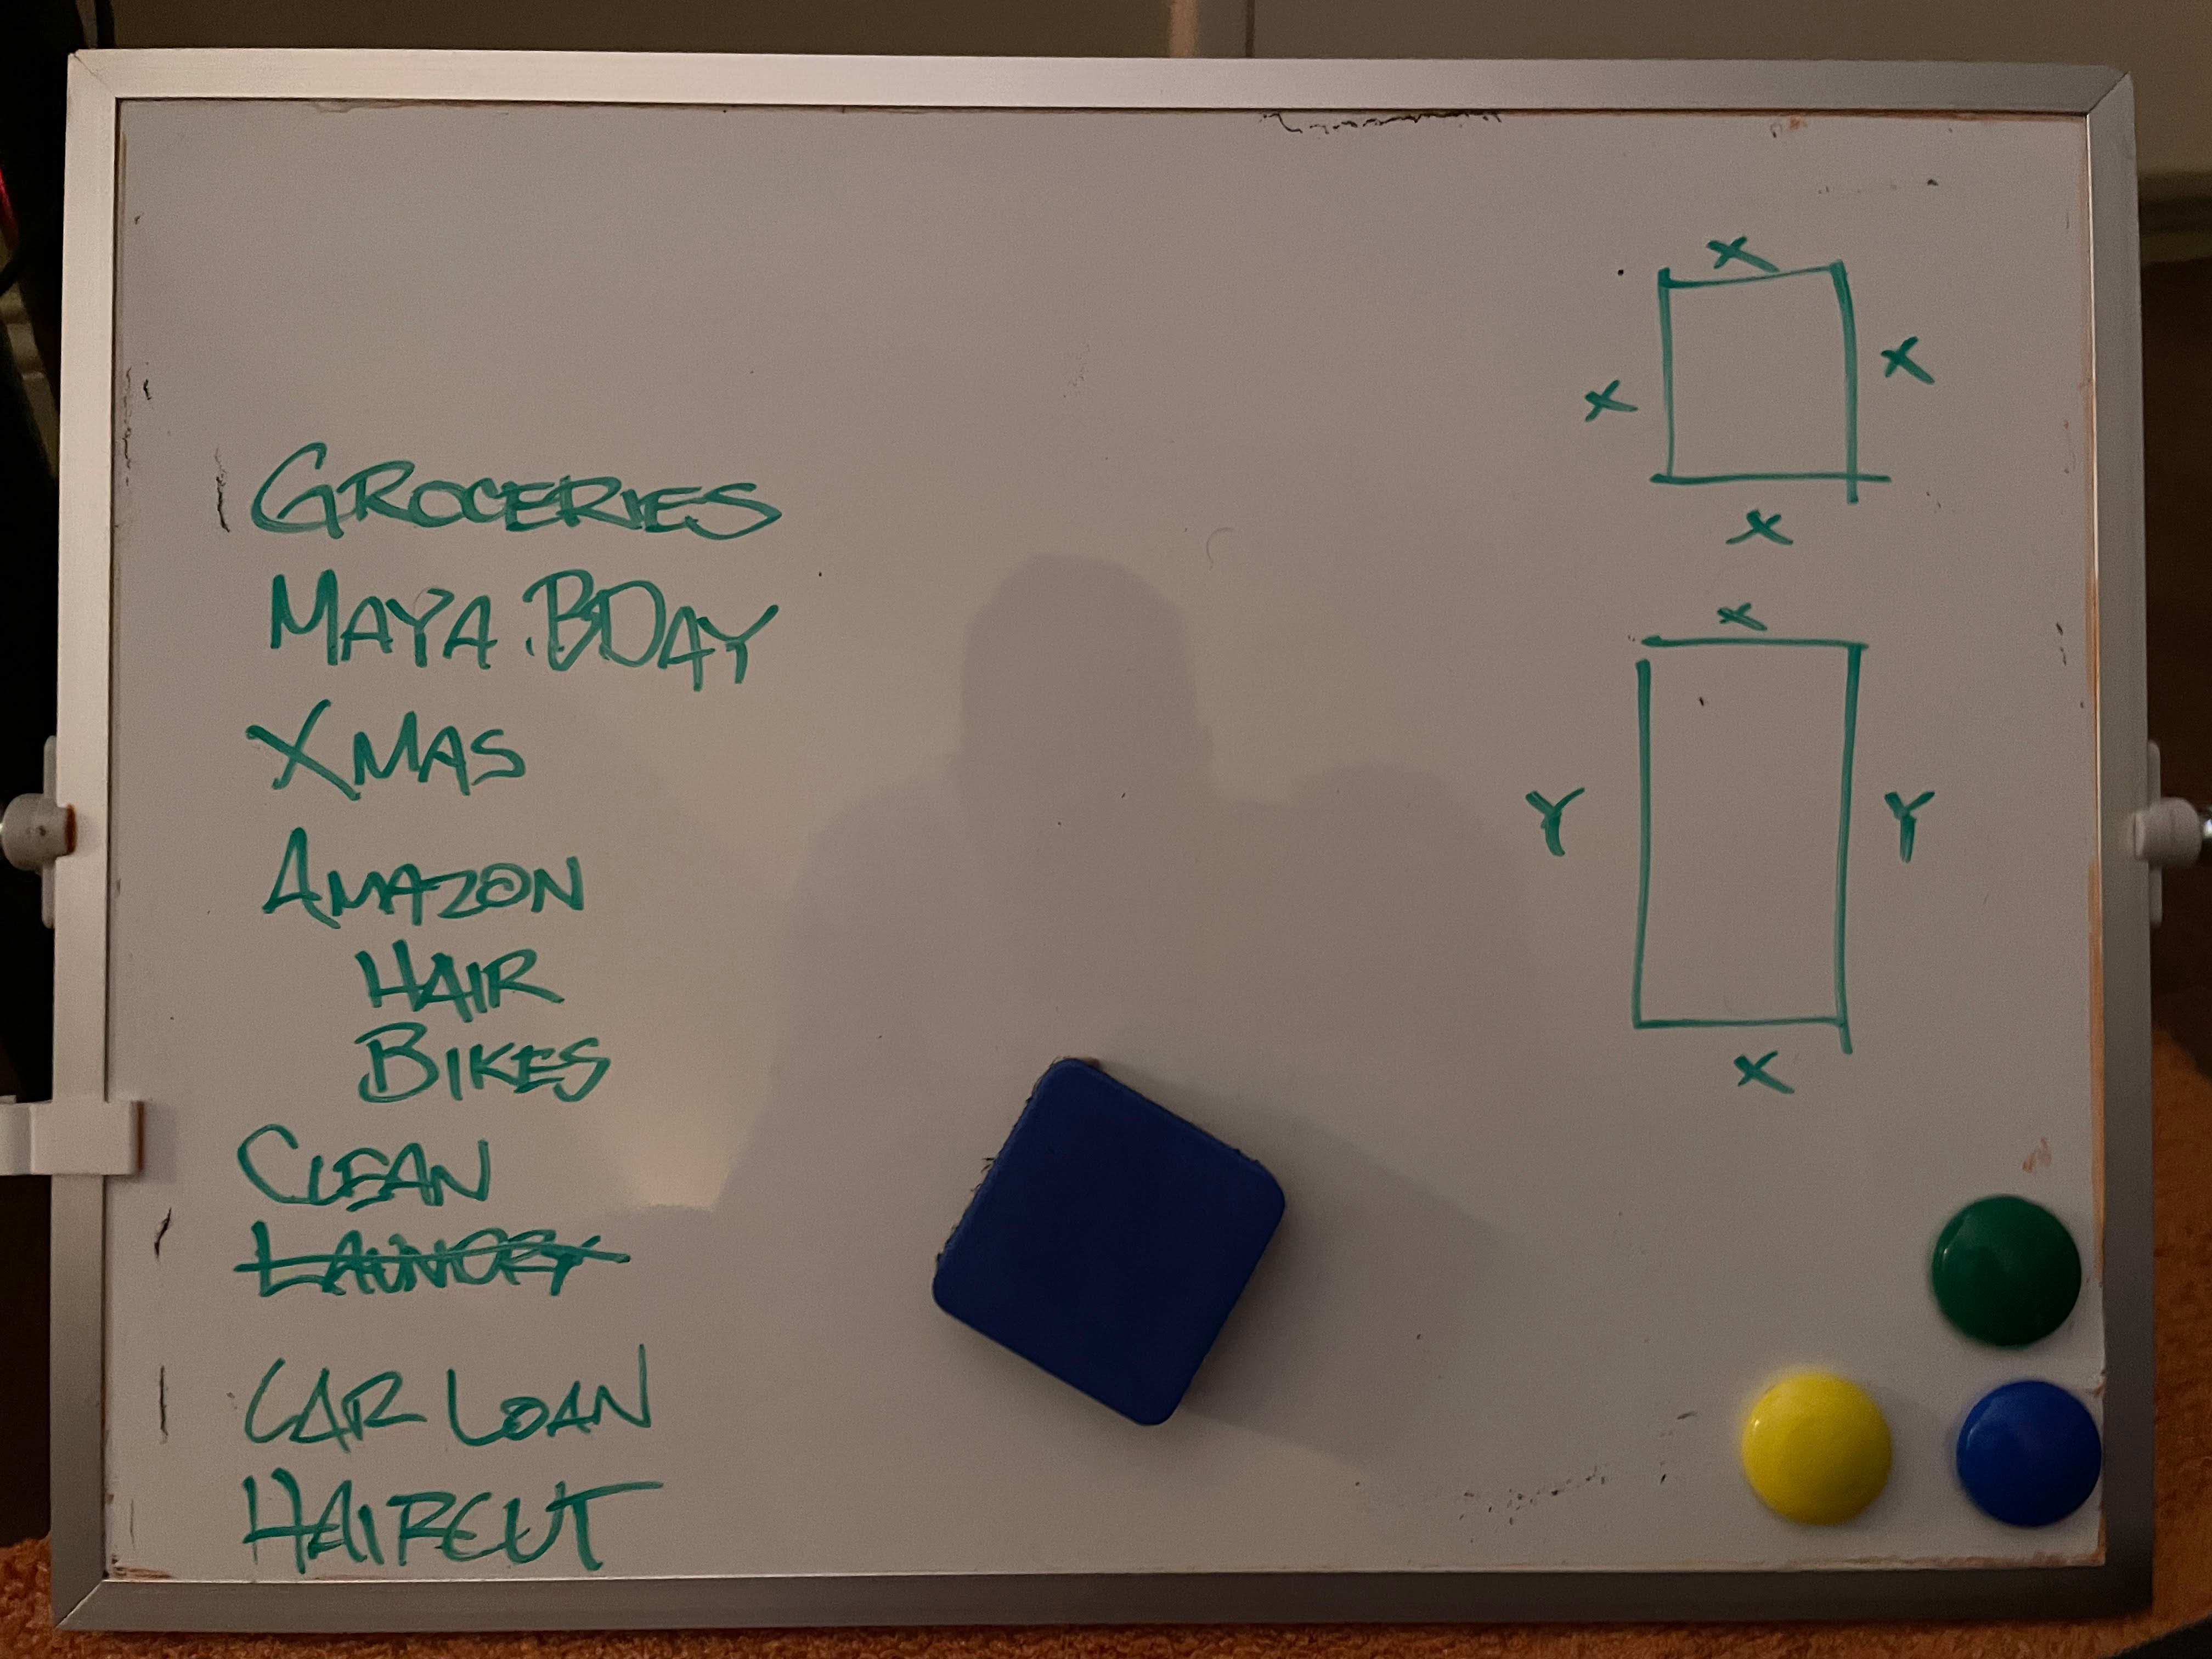 GROCERIES
MAYA BDAY
XMAS
AMAZON
HAIR
BIKES
CLEAN
LAUNDRY
CAR LOAN
HAIRCUT
X
X
X
X
X
Y Y
X